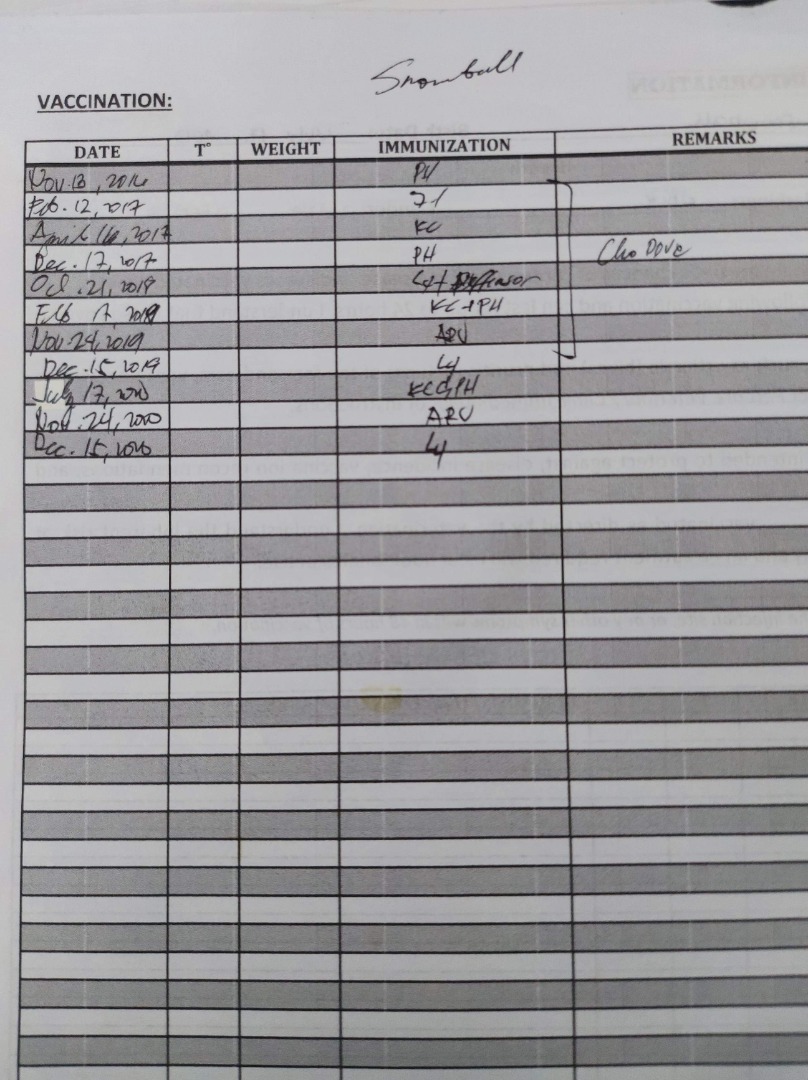 Snowball
VACCINATION:
DATE T° WEIGHT IMMUNIZATION REMARKS
Nov. 13, 2016 PH
Feb. 12, 2017
April 16, 2017 KC
Dec. 17, 2017 PH
Oct. 21, 2018 L4+
Feb 17 2019 KC+PH
Nov. 24, 2019 ARV
Dec. 15, 2019 L4
July 17, 2020 KC&PH
Nov. 24, 2020 ARV
Dec. 15, 2020 L4